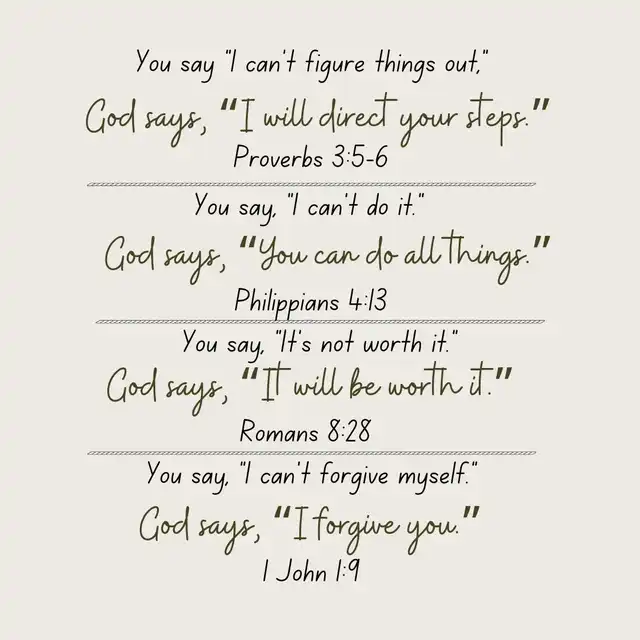 You say "I can't figure things out,"
God says, “I will direct your steps.”
Proverbs 3:5-6
You say, "I can't do it."
God says, “You can do all things.”
Philippians 4:13
You say, "It's not worth it."
God says, “It will be worth it.”
Romans 8:28
You say, "I can't forgive myself."
God says, “I forgive you.”
1 John 1:9